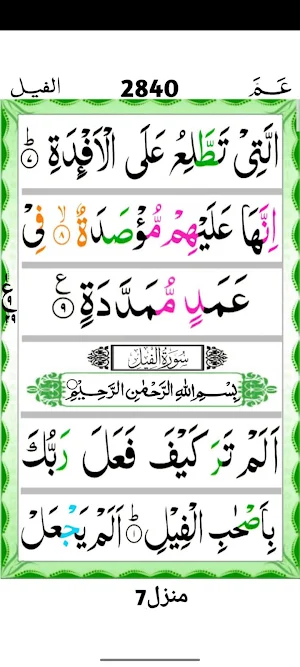 الفيل 2840 عَمَّ
الَّتِیْ تَطَّلِعُ عَلَی الْاَفْـِٕدَةِ ؕ‏﴿۷﴾
اِنَّهَا عَلَیْهِمْ مُّؤْصَدَةٌ ۙ‏﴿۸﴾ فِیْ
عَمَدٍ مُّمَدَّدَةٍ ‏﴿۹﴾ ع
سُوْرَةُ الْفِیْلِ
بِسْمِ اللهِ الرَّحْمٰنِ الرَّحِیْمِ
اَلَمْ تَرَ كَیْفَ فَعَلَ رَبُّكَ
بِاَصْحٰبِ الْفِیْلِ ؕ‏﴿۱﴾ اَلَمْ یَجْعَلْ
منزل7